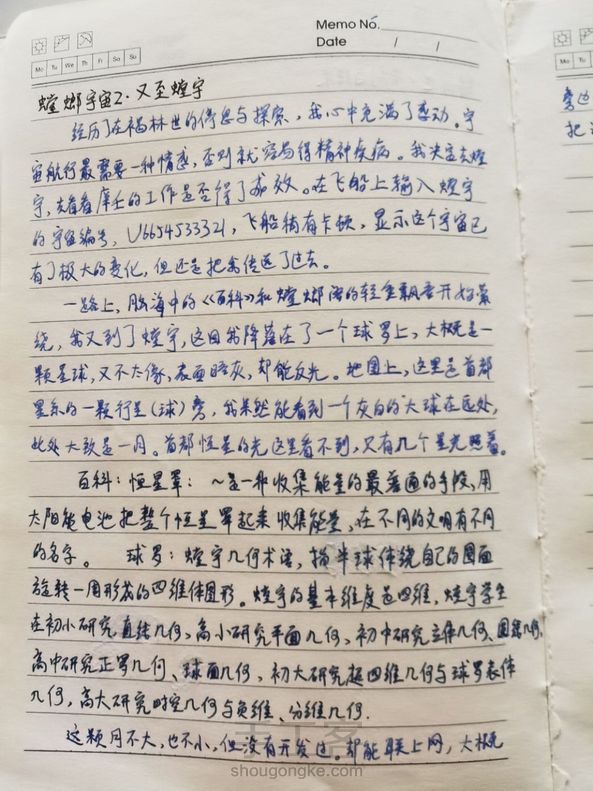 Memo No.
Date / /
Mo Tu We Th Fr Sa Su
螳螂宇宙2·又至螳宇
经历了在福林世的停息与探索，我心中充满了感动。宇
宙航行最需要一种情感，否则就容易得精神疾病。我决定去螳
宇，去看看摩壬的工作是否得了成效。在飞船上输入螳宇
的宇宙编号，U6654533321，飞船稍有卡顿，显示这个宇宙已
有了极大的变化，但还是把我传送了过去。
一路上，脑海中的《百科》和螳螂语的轻重飘音开始萦
绕，我又到了螳宇，这回我降落在了一个球罗上，大概是一
颗星球，又不太像，表面暗灰，却能反光。地图上，这里是首都
星系的一颗行星（球）旁，我果然能看到一个灰白的大球在远处，
此处大致是一月。首都恒星的光这里看不到，只有几个星光照着。
百科：恒星罩：～是一种收集能量的最普通的手段，用
太阳能电池把整个恒星罩起来收集能量，在不同的文明有不同
的名字。 球罗：螳宇几何术语，指半球体绕自己的圆面
旋转一周形成的四维体图形。螳宇的基本维度是四维，螳宇学生
在初小研究直线几何，高小研究平面几何，初中研究立体几何、圆锥几何，
高中研究正罗几何、球面几何，初大研究超四维几何与球罗表体
几何，高大研究时空几何与负维、分维几何.
这颗月不大，也不小，但没有开发过。却能联上网，大概
手工客
shougongke.com
旁边
把